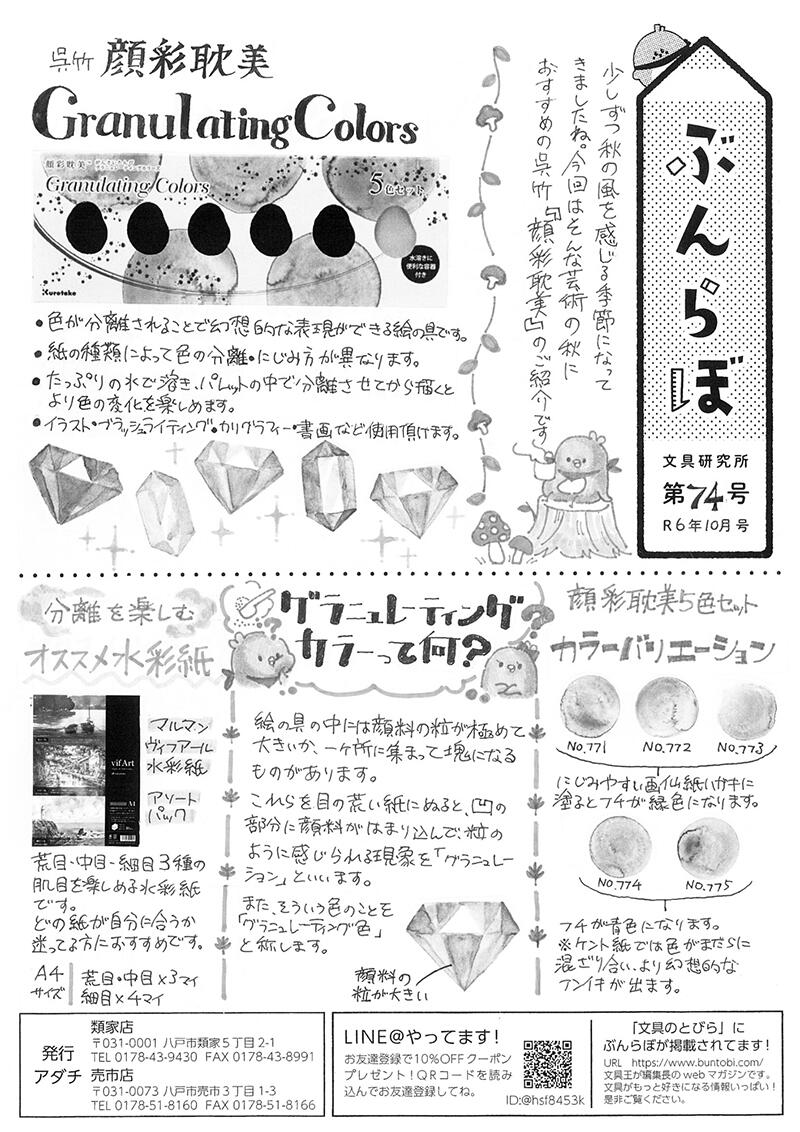 ぶんらぼ
文具研究所
第74号
R6年10月号
少しずつ秋の風を感じる季節になって
きましたね。今回はそんな芸術の秋に
おすすめの呉竹「顔彩耽美」のご紹介です
呉竹 顔彩耽美
Granulating Colors
顔彩耽美
Granulating Colors
5色セット
水溶きに
便利な容器
付き
Kuretake
・色が分離されることで幻想的な表現ができる絵の具です。
・紙の種類によって色の分離・にじみ方が異なります。
・たっぷりの水で溶き、パレットの中で分離させてから描くと
より色の変化を楽しめます。
・イラスト・ブラッシュライティング・カリグラフィー・書画など使用頂けます。
分離を楽しむ
オススメ水彩紙
vifArt
マルマン
ヴィフアール
水彩紙
アソート
パック
荒目・中目・細目3種の
肌目を楽しめる水彩紙
です。
どの紙が自分に合うか
迷ってる方におすすめです。
A4
サイズ
荒目・中目×3マイ
細目×4マイ
グラニュレーティング
カラーって何?
絵の具の中には顔料の粒が極めて
大きいか、一ヶ所に集まって塊になる
ものがあります。
これらを目の荒い紙にぬると、凹の
部分に顔料がはまり込んで、粒の
ように感じられる現象を「グラニュレー
ション」といいます。
また、そういう色のことを
「グラニュレーティング色」
と称します。
顔料の
粒が大きい
顔彩耽美5色セット
カラーバリエーション
No.771
No.772
No.773
にじみやすい画仙紙ハガキに
塗るとフチが緑色になります。
No.774
No.775
フチが青色になります。
※ケント紙では色がまだらに
混ざり合い、より幻想的な
フンイキが出ます。
発行
アダチ
類家店
〒031-0001 八戸市類家5丁目2-1
TEL 0178-43-9430 FAX 0178-43-8991
売市店
〒031-0073 八戸市売市3丁目1-3
TEL 0178-51-8160 FAX 0178-51-8166
LINE@やってます!
お友達登録で10%OFFクーポン
プレゼント!QRコードを読み
込んでお友達登録してね。
ID:@hsf8453k
「文具のとびら」に
ぶんらぼが掲載されてます!
URL https://www.buntobi.com/
文具王が編集長のwebマガジンです。
文具がもっと好きになる情報いっぱい!
是非ご覧ください。